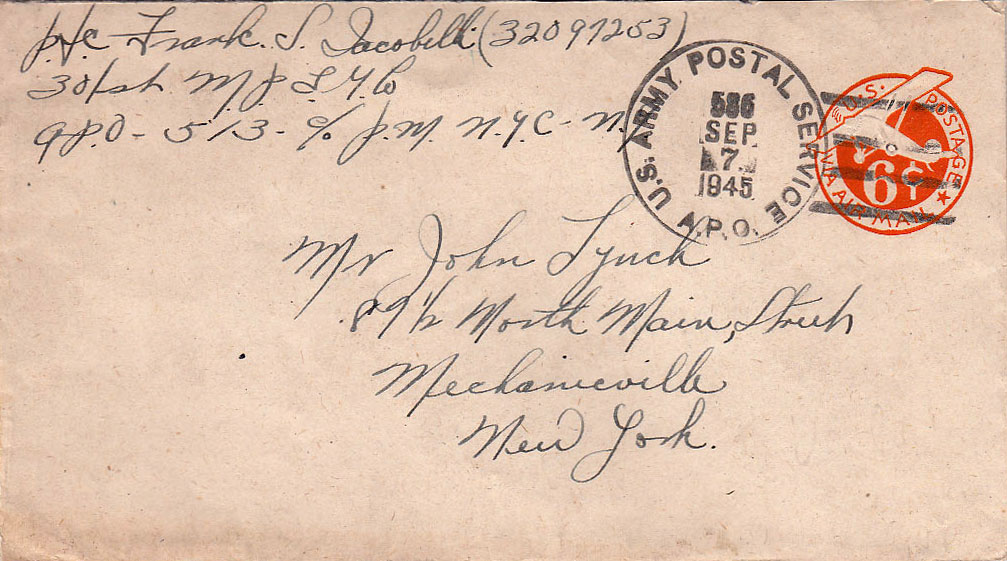 Pfc Frank. S. Iacobelli (32091253)
301st M.P.E.G Co
A.P.O - 513 - c/o P.M. N.Y.C - N.Y
U.S. ARMY POSTAL SERVICE
586
SEP
7
1945
A.P.O.
U.S. POSTAGE
6¢
VIA AIR MAIL
Mr John Lynch
89½ North Main, Street
Mechanicville
New York.